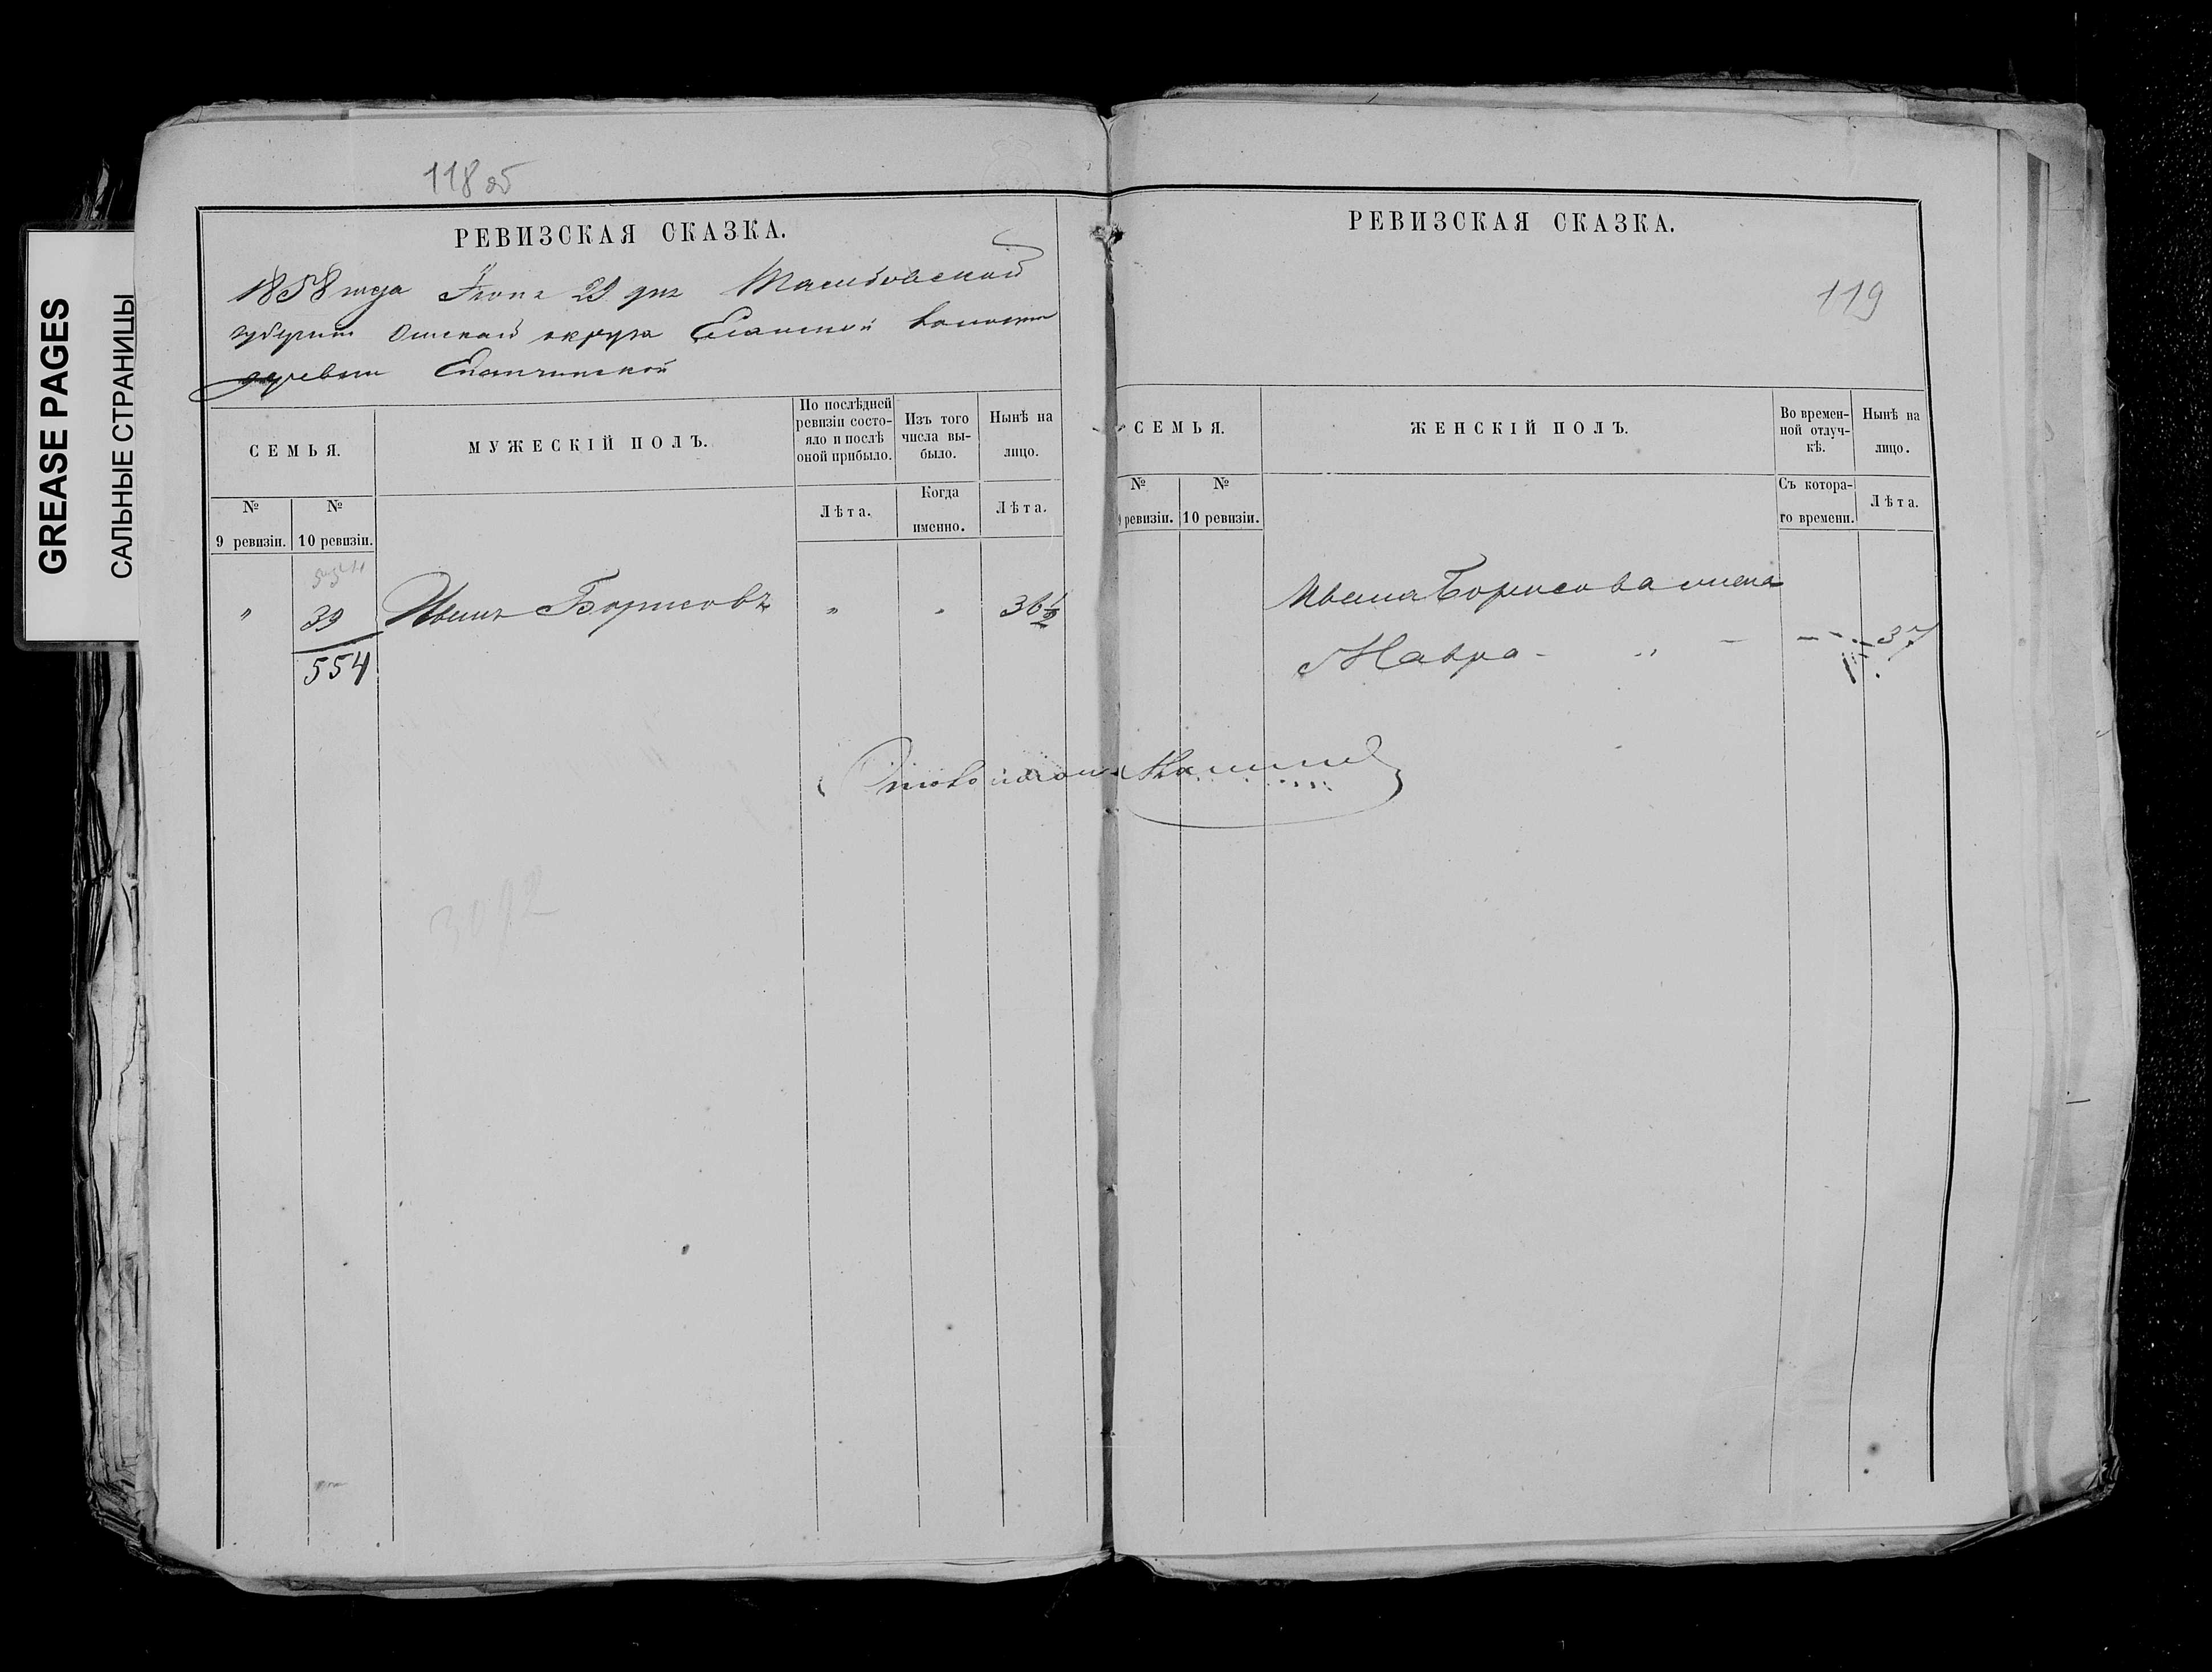 GREASE PAGES
САЛЬНЫЕ СТРАНИЦЫ
118 об
РЕВИЗСКАЯ СКАЗКА.
1858 года Іюня 29 дня Тобольской
губерніи Омскаго округа Еланской волости
деревни
СЕМЬЯ.
МУЖЕСКІЙ ПОЛЪ.
По послѣдней ревизіи состояло и послѣ оной прибыло.
Изъ того числа выбыло.
Нынѣ на лицо.
№ 9 ревизіи.
№ 10 ревизіи.
Лѣта.
Когда именно.
Лѣта.
" 39 Иванъ Борисовъ " " 36 1/2
554
3092
РЕВИЗСКАЯ СКАЗКА.
119
СЕМЬЯ.
ЖЕНСКІЙ ПОЛЪ.
Во временной отлучкѣ.
Нынѣ на лицо.
№ 9 ревизіи.
№ 10 ревизіи.
Съ котораго времени.
Лѣта.
Ивана Борисова жена
Мавра - " - - 37